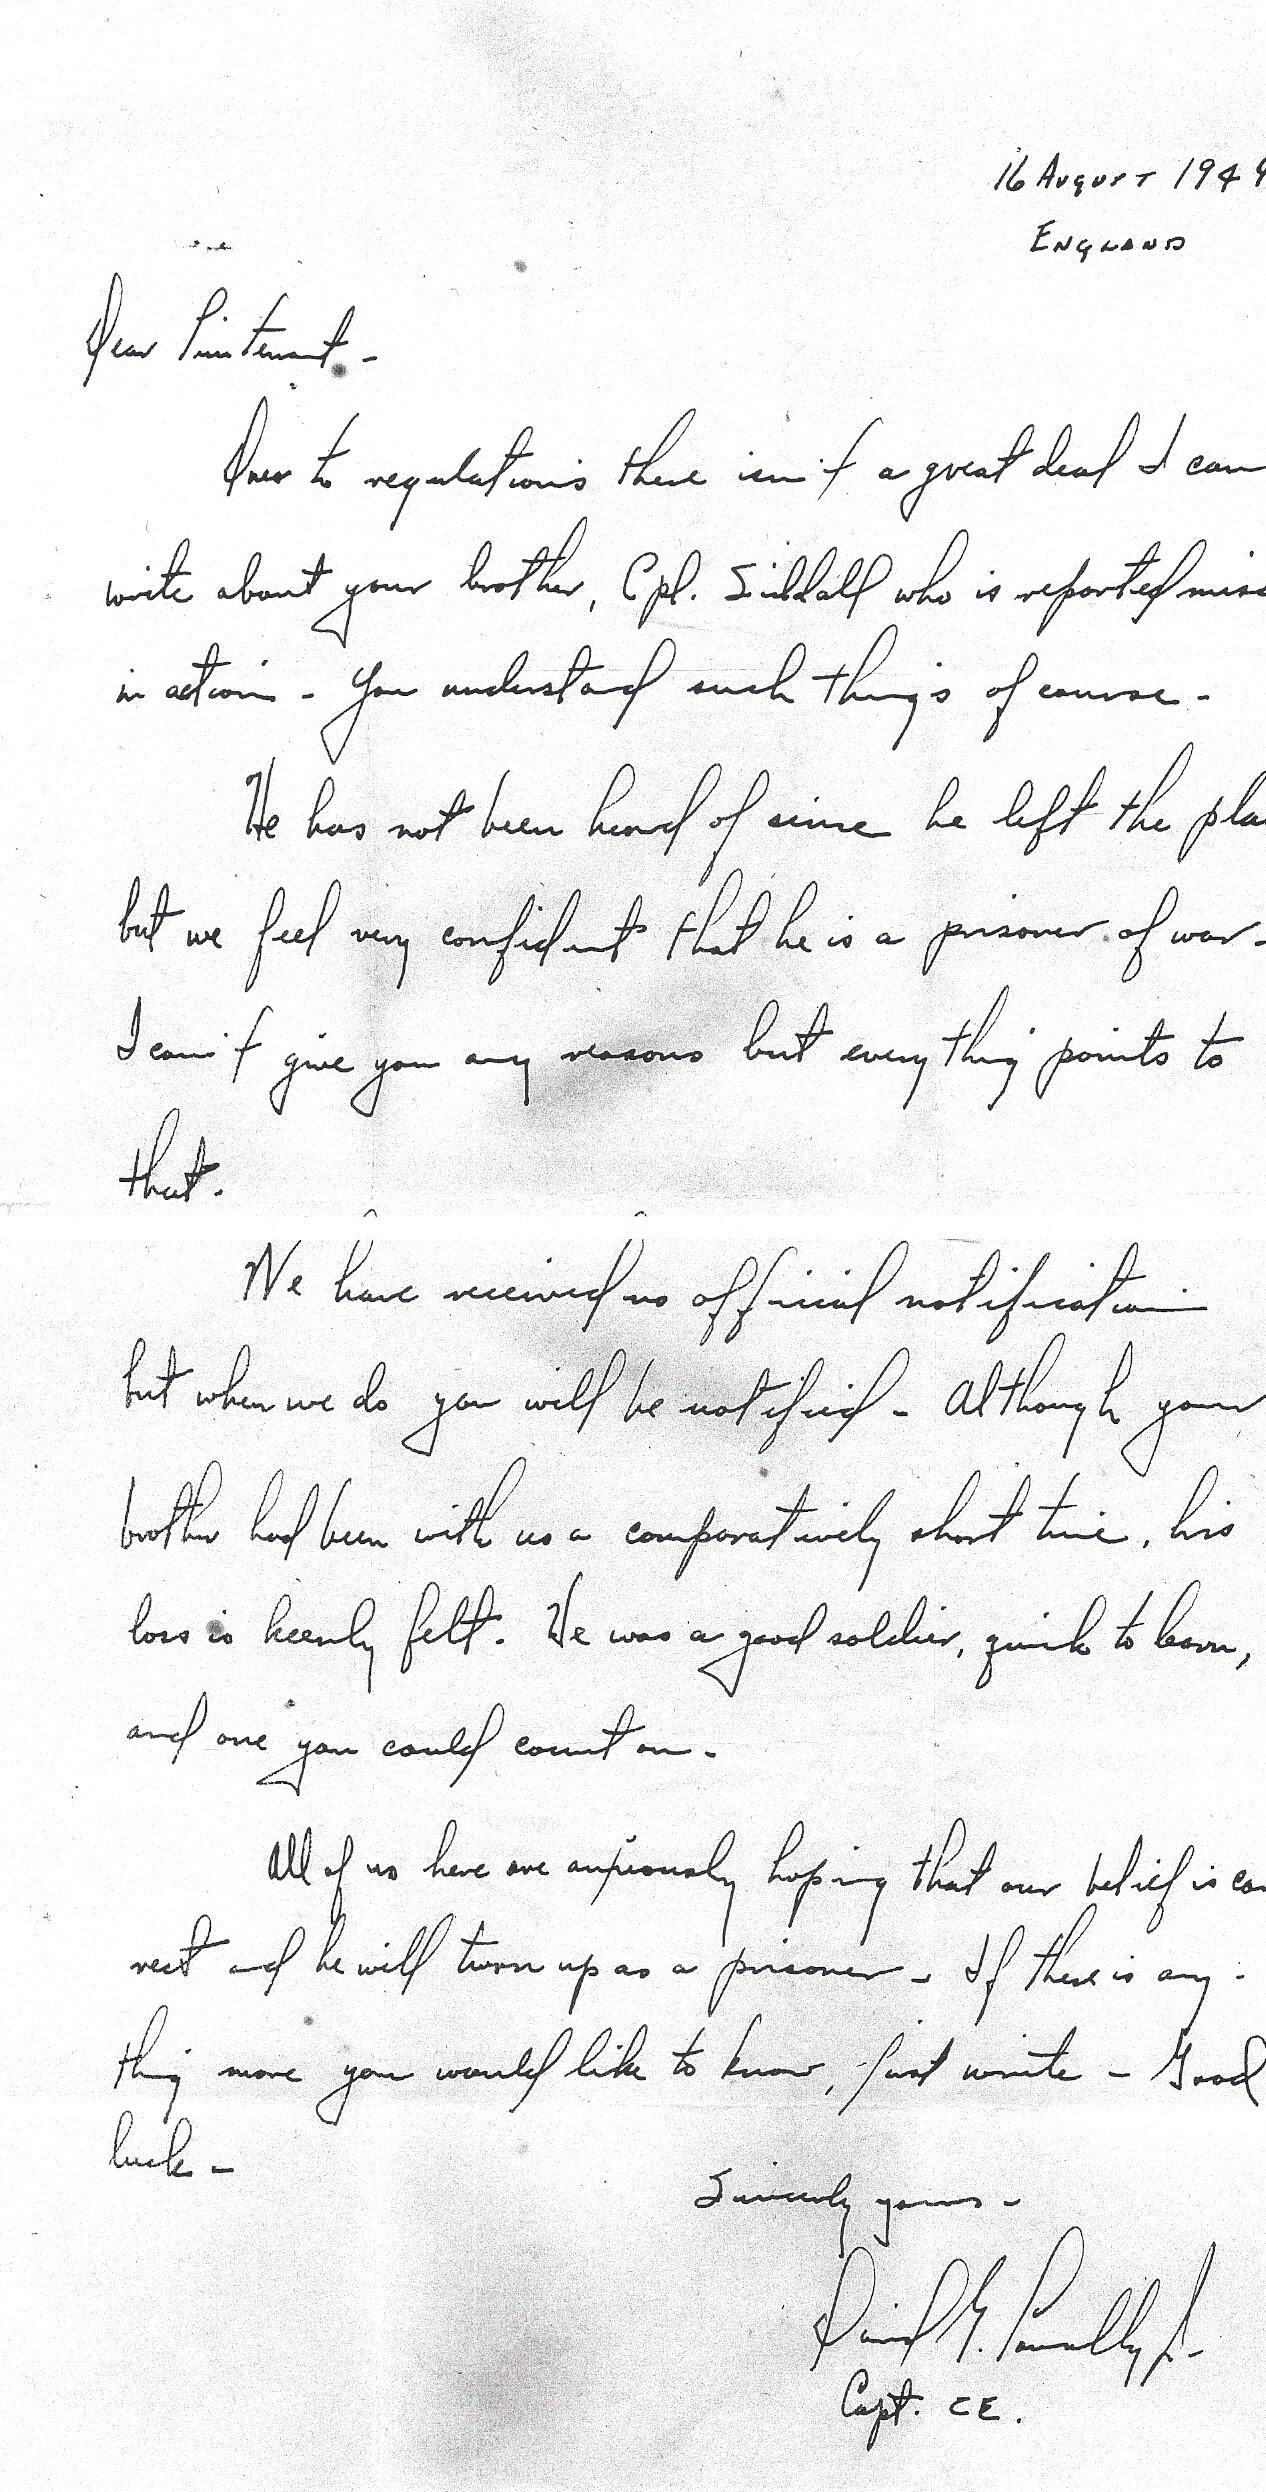 16 August 1944
England
Dear Lieutenant -
Due to regulations there isn't a great deal I can
write about your brother, Cpl. Siddall who is reported miss
in action - You understand such things of course -
He has not been heard of since he left the pla
but we feel very confident that he is a prisoner of war -
I can't give you any reasons but everything points to
that.
We have received no official notification
but when we do you will be notified - Although your
brother had been with us a comparatively short time, his
loss is keenly felt. He was a good soldier, quick to learn,
and one you could count on -
All of us here are anxiously hoping that our belief is cor
rect and he will turn up as a prisoner - If there is any -
thing more you would like to know, just write - Good
luck -
Sincerely yours -
David G. Connally Jr -
Capt. CE.